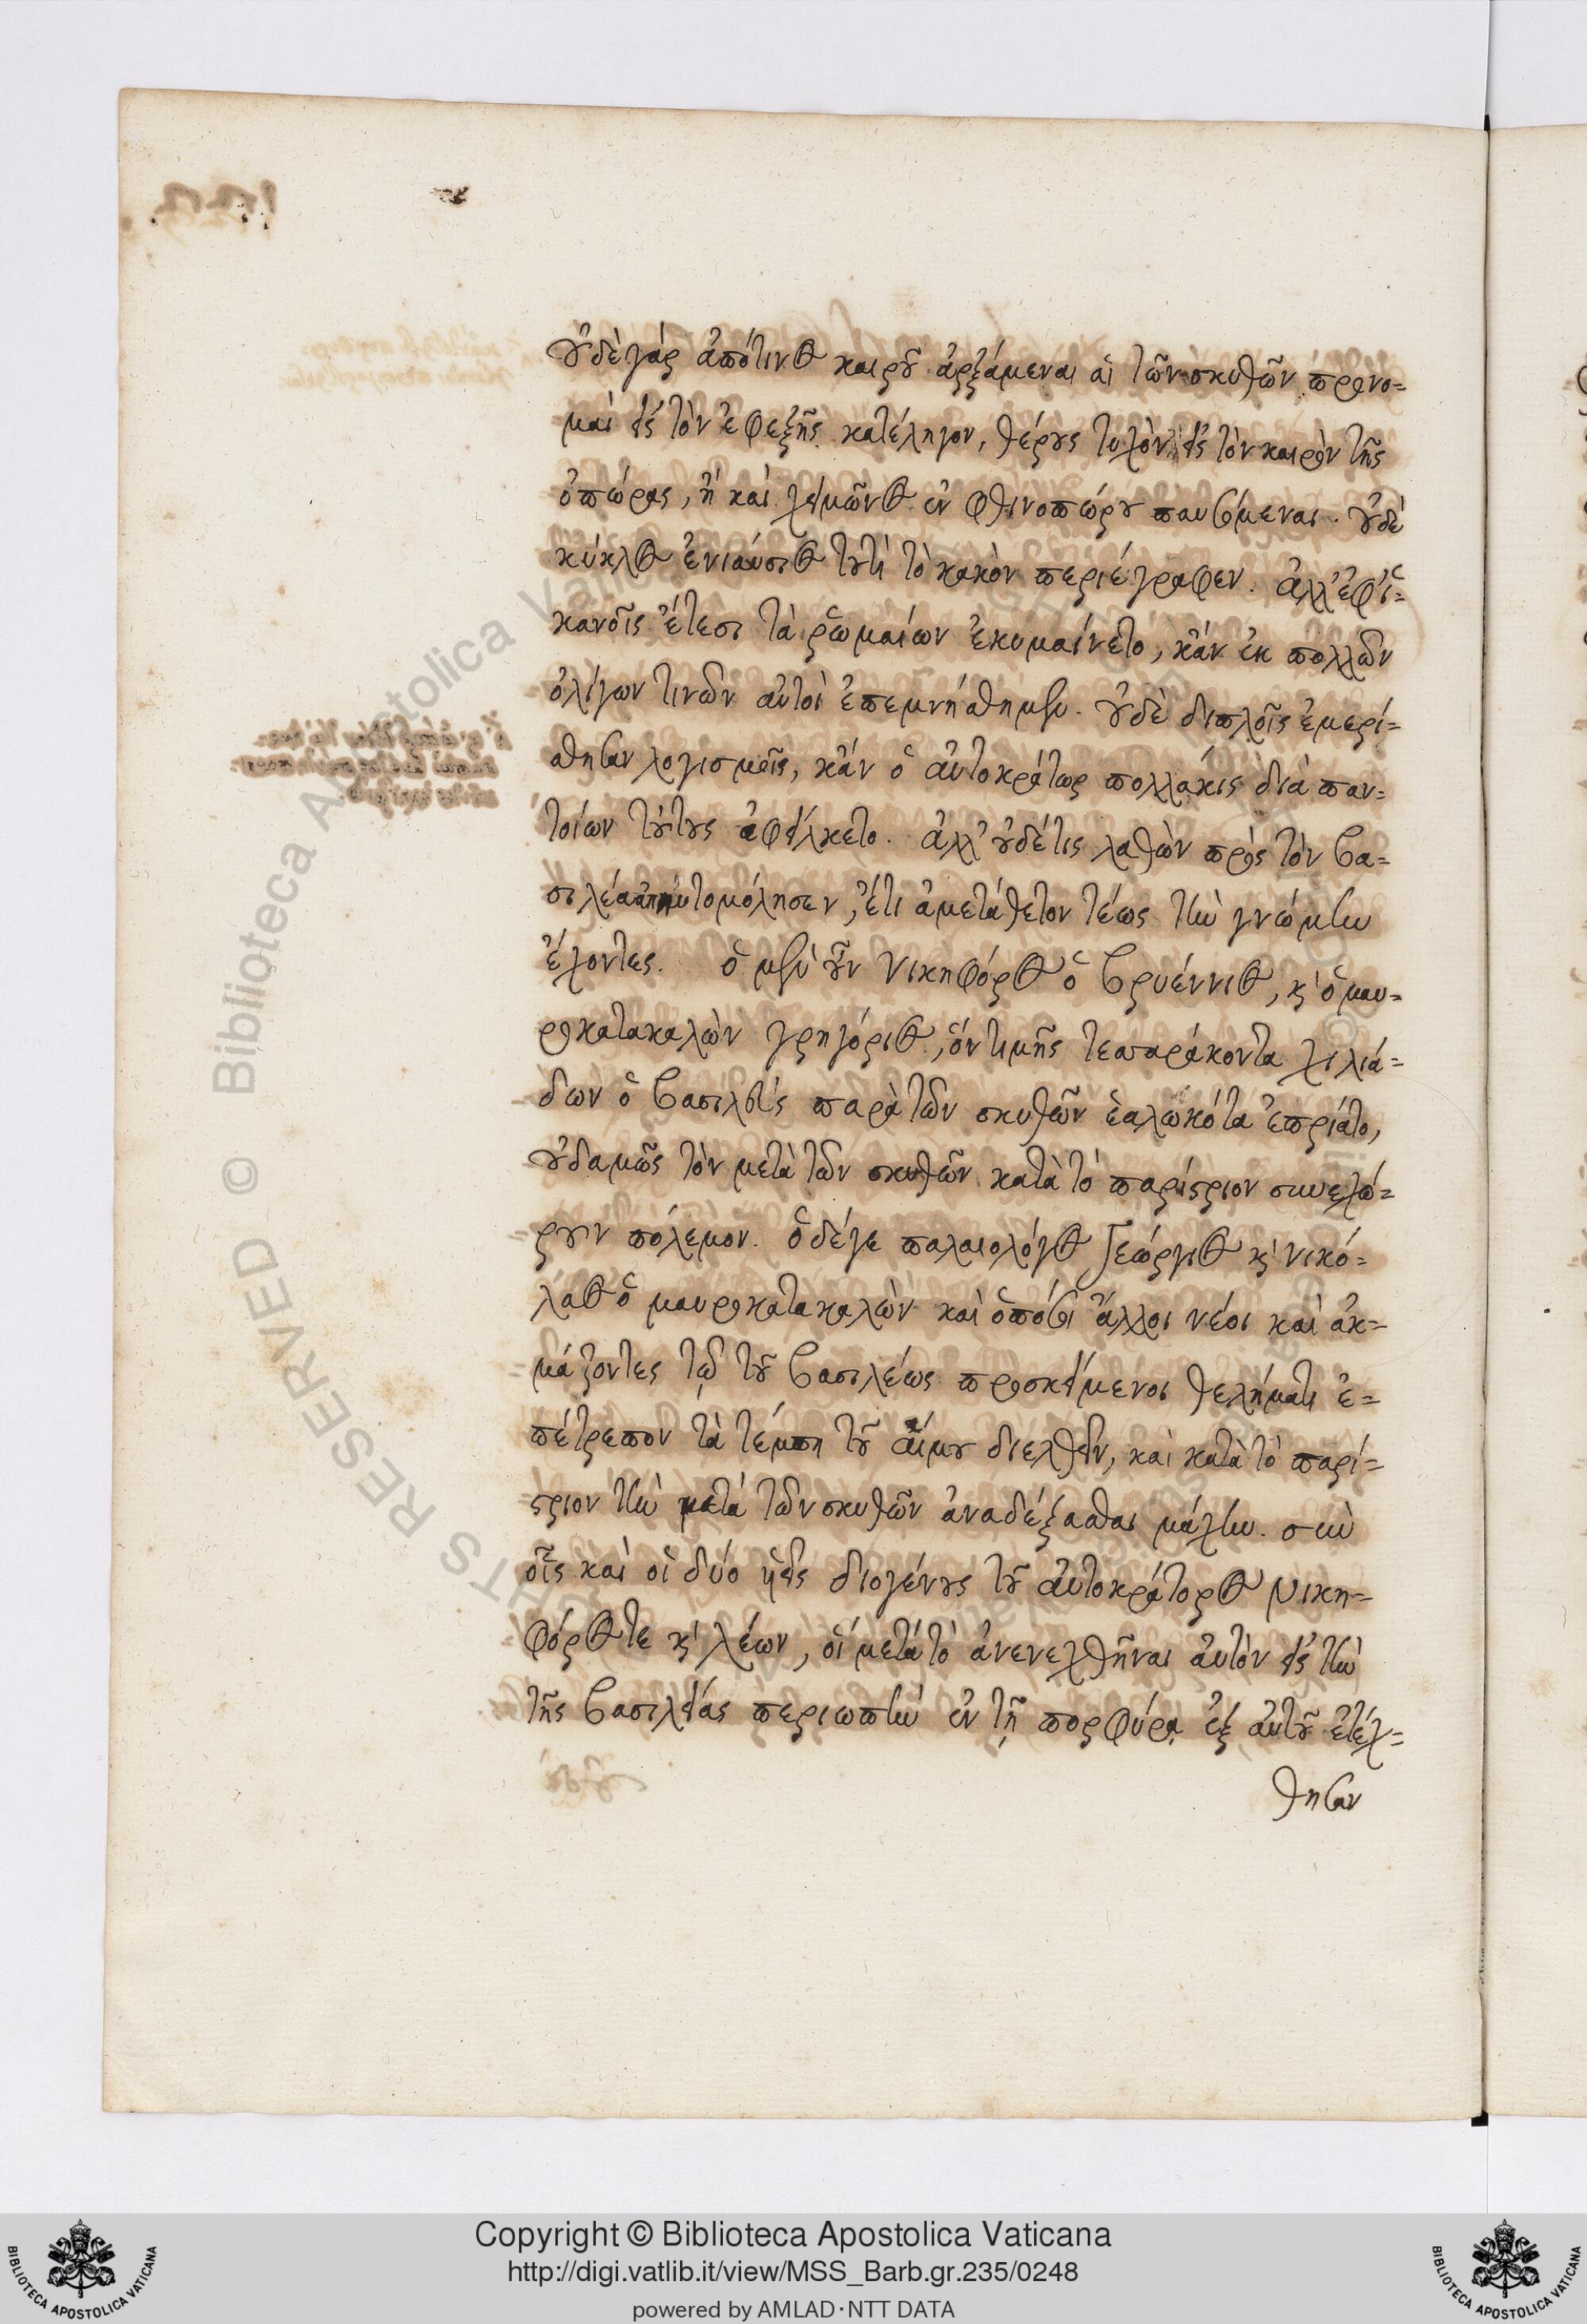 οὐδὲ γάρ ἀπό τινος καιροῦ ἀρξάμεναι αἱ τῶν σκυθῶν προνο=
μαὶ εἰς τὸν ἐφεξῆς κατέληγον, θέρους τυχὸν εἰς τὸν καιρὸν τῆς
ὀπώρας, ἢ καὶ χειμῶνος ἐν φθινοπώρου παυσάμεναι. οὐδὲ
κύκλος ἐνιαύσιος τουτὶ τὸ κακὸν περιέγραφεν. ἀλλ' ἐφ' ἱ=
κανοῖς ἔτεσι τὰ ῥωμαίων ἐκυμαίνετο, κἂν ἐκ πολλῶν
ὀλίγων τινῶν αὐτοὶ ἐπεμνήσθημεν. οὐδὲ διπλοῖς ἐμερί=
σθησαν λογισμοῖς, κἂν ὁ αὐτοκράτωρ πολλάκις διὰ παν=
τοίων τούτους ἀφείλκετο. ἀλλ' οὐδέ τις λαθὼν πρὸς τὸν βα=
σιλέα ηὐτομόλησεν, ἔτι ἀμετάθετον τέως τὴν γνώμην
ἔχοντες. ὁ μὲν οὖν Νικηφόρος ὁ βρυέννιος, κ' ὁ μαυ=
ροκατακαλὼν γρηγόριος, ὃν τιμῆς τεσσαράκοντα χιλιά=
δων ὁ βασιλεὺς παρὰ τῶν σκυθῶν ἑαλωκότα ἐπρίατο,
οὐδαμῶς τὸν μετὰ τῶν σκυθῶν κατὰ τὸ παρίστριον συνεχώ=
ρουν πόλεμον. ὁ δέ γε παλαιολόγος Γεώργιος κ' νικό=
λαος ὁ μαυροκατακαλὼν καὶ ὁπόσοι ἄλλοι νέοι καὶ ἀκ=
μάζοντες τῷ τοῦ βασιλέως προσκείμενοι θελήματι ἐ=
πέτρεπον τὰ τέμπη τοῦ αἵμου διελθεῖν, καὶ κατὰ τὸ παρί=
στριον τὴν μετὰ τῶν σκυθῶν ἀναδέξασθαι μάχην. σὺν
οἷς καὶ οἱ δύο υἱεῖς διογένους τοῦ αὐτοκράτορος Νικη=
φόρος τε κ' λέων, οἳ μετὰ τὸ ἀνενεχθῆναι αὐτὸν εἰς τὴν
τῆς βασιλείας περιωπὴν ἐν τῇ πορφύρᾳ ἐξ αὐτοῦ ἐτέχ=
θησαν
© Biblioteca Apostolica Vaticana
RIGHTS RESERVED
Copyright © Biblioteca Apostolica Vaticana
http://digi.vatlib.it/view/MSS_Barb.gr.235/0248
powered by AMLAD·NTT DATA
BIBLIOTECA APOSTOLICA VATICANA
BIBLIOTECA APOSTOLICA VATICANA